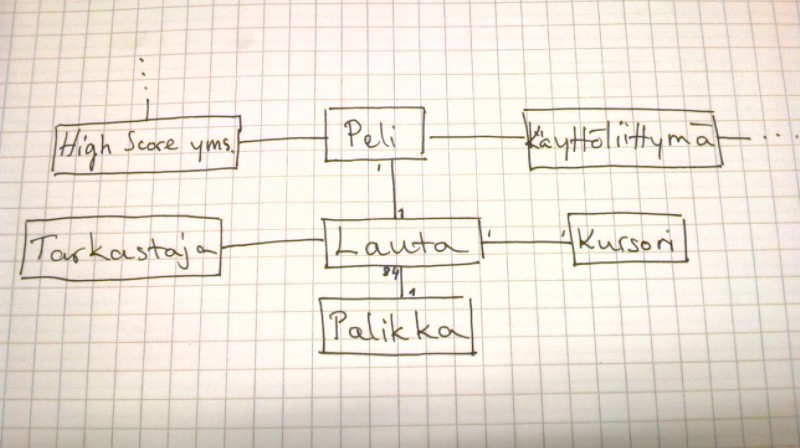 High Score yms.
Peli
Käyttöliittymä
1
1
Tarkastaja
Lauta
1
1
Kursori
84
1
Palikka